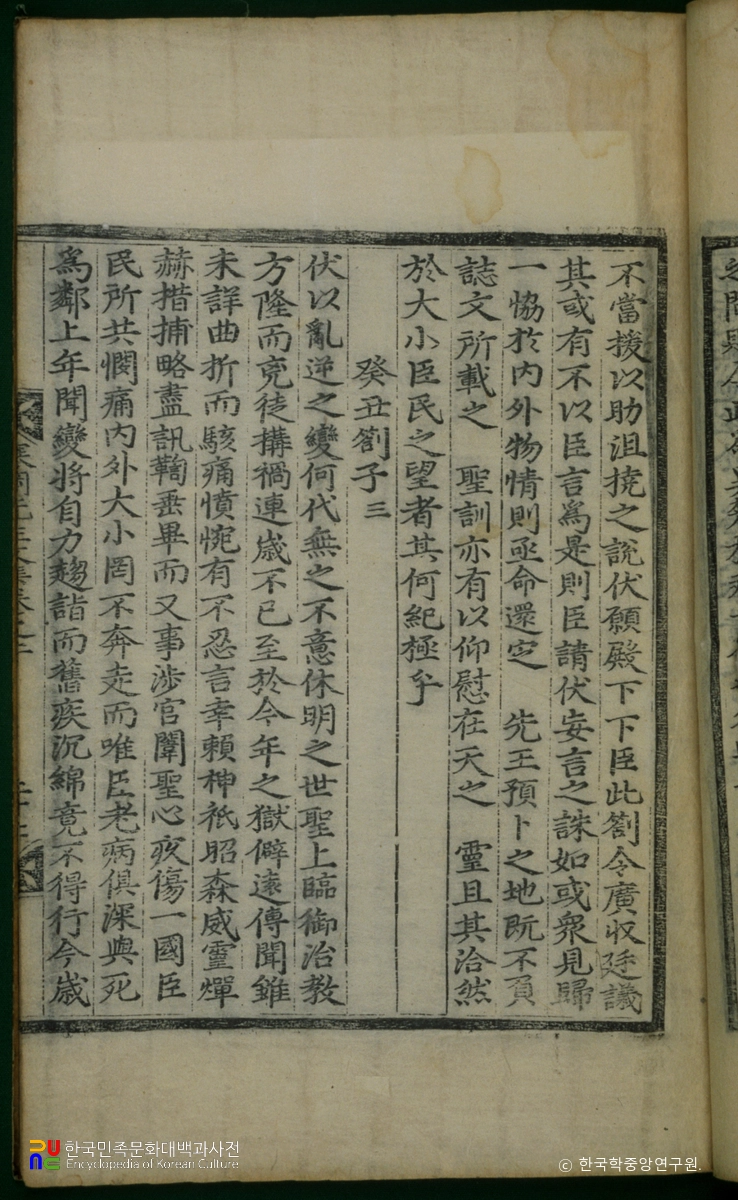 不當援以助沮撓之說伏願殿下下臣此劄令廣収廷議
其或有不以臣言爲是則臣請伏妄言之誅如或衆見歸
一恊於内外物情則亟命還定 先王預卜之地旣不負
誌文所載之 聖訓亦有以仰慰在天之 靈且其洽然
於大小臣民之望者其何紀極乎
癸丑劄子三
伏以亂逆之變何代無之不意休明之世聖上臨御治教
方隆而兇徒搆禍連歲不已至於今年之獄僻遠傳聞雖
未詳曲折而駭痛憤惋有不忍言幸賴神祇昭森威靈燀
赫措捕略盡訊鞫垂畢而又事涉官闈聖心疚傷一國臣
民所共憫痛内外大小罔不奔走而唯臣老病俱深與死
爲鄰上年聞變將自力趨詣而舊疾沉綿竟不得行今歲
한국민족문화대백과사전
Encyclopedia of Korean Culture
© 한국학중앙연구원.